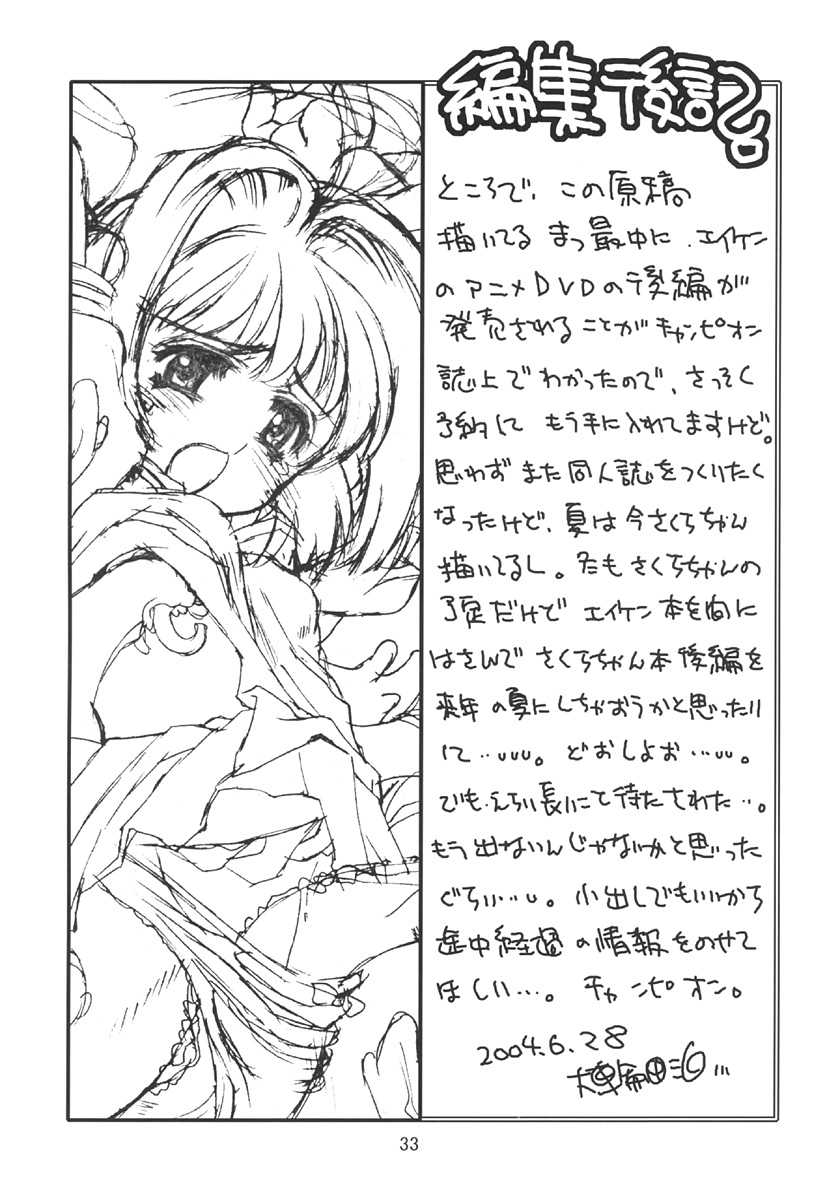 編集後記。
ところで、この原稿
描いてる まっ最中に、エイケン
のアニメDVDの後編が
発売されることがチャンピオン
誌上でわかったので、さっそく
予約して もう手に入れてますけど。
思わず また同人誌をつくりたく
なったけど、夏は今さくらちゃん
描いてるし。冬もさくらちゃんの
予定だけど エイケン本を間に
はさんで さくらちゃん本後編を
来年の夏にしちゃおうかと思ったり
して…。どおしよお…。
でも えらい長いこと待たされた…。
もう出ないんじゃないかと思った
ぐらい…。小出しでもいいから
途中経過の情報をのせて
ほしい…。チャンピオン。
2004.6.28
33